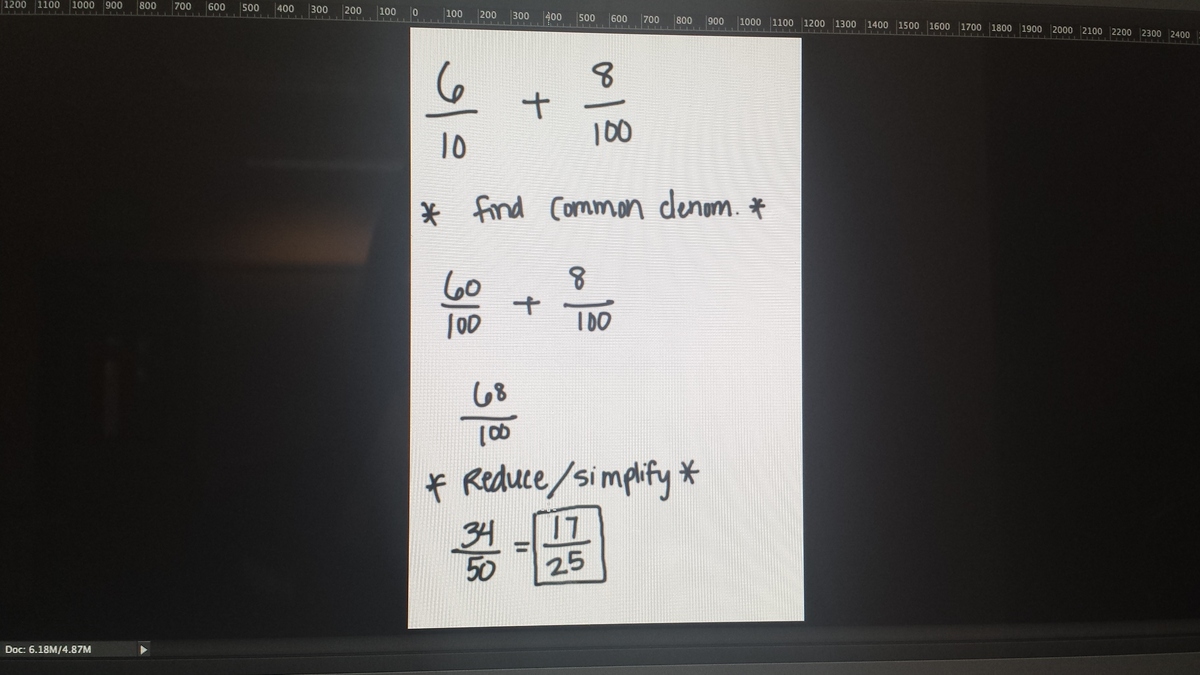 1200 1100 1000 900 800 700 600 500 400 300 200 100 0 100 200 300 400 500 600 700 800 900 1000 1100 1200 1300 1400 1500 1600 1700 1800 1900 2000 2100 2200 2300 2400
6/10 + 8/100
* find common denom. *
60/100 + 8/100
68/100
* Reduce/simplify *
34/50 = 17/25
Doc: 6.18M/4.87M